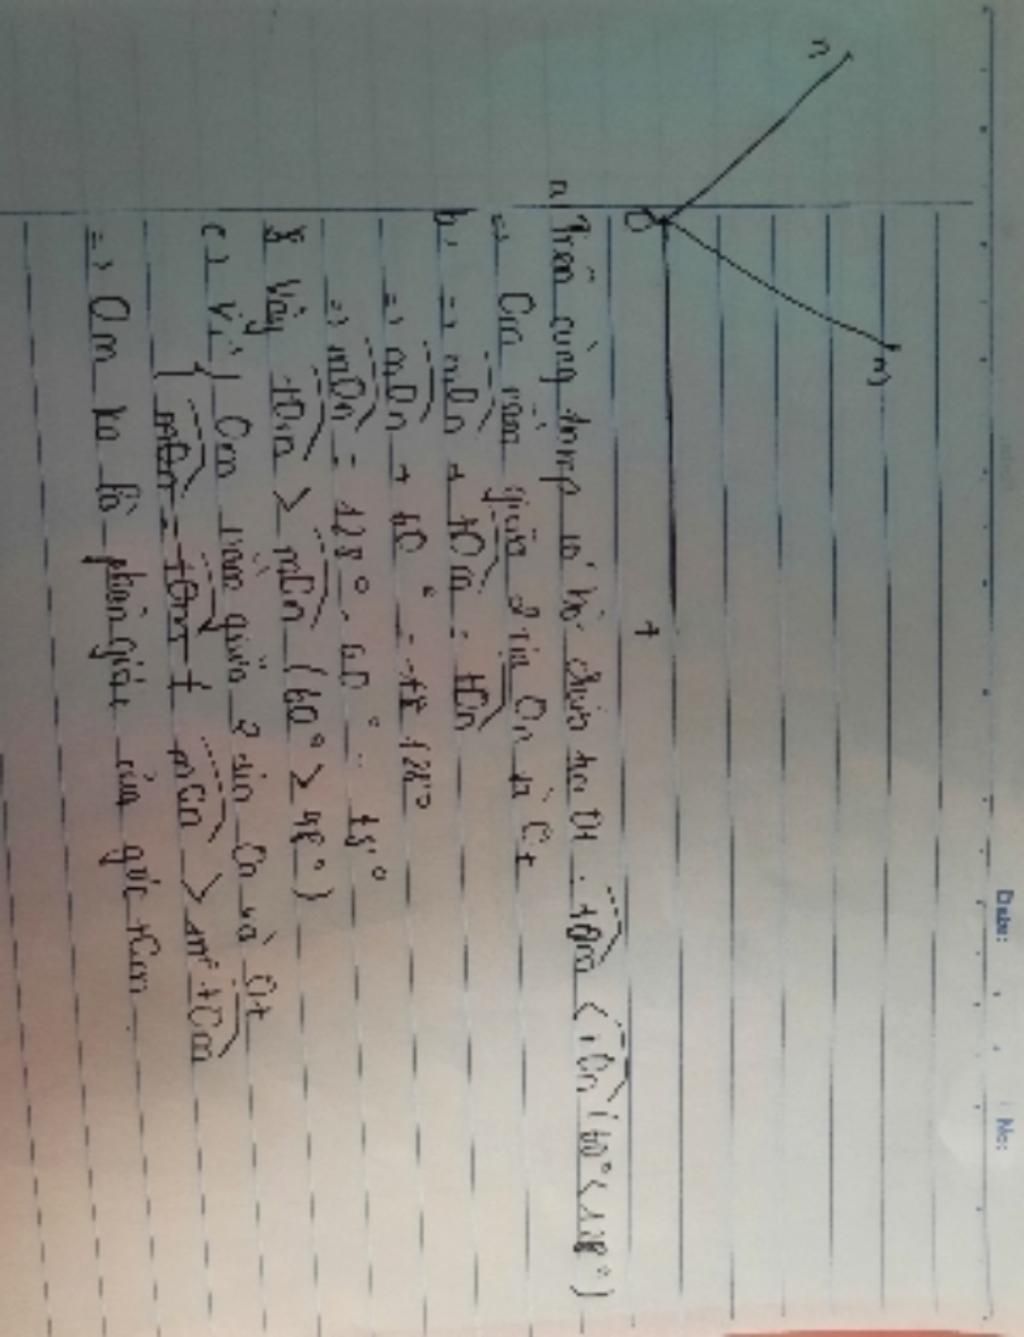 Date: No:
n
m
O
t
a, Trên cùng 1nmp có bờ chứa tia Ot. tOm < tOn (60° < 128°)
=> Om nằm giữa 2 tia On và Ot
b, => mOn + tOm = tOn
=> mOn + 60° = 128°
=> mOn = 128° - 60° = 68°
Vậy tOm > mOn (60° > 48°)
c, Vì { Om nằm giữa 2 tia On và Ot
mOn > tOm
=> Om ko là phân giác của góc tOm